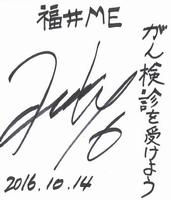 福井ME
がん検診を受けよう
2016.10.14